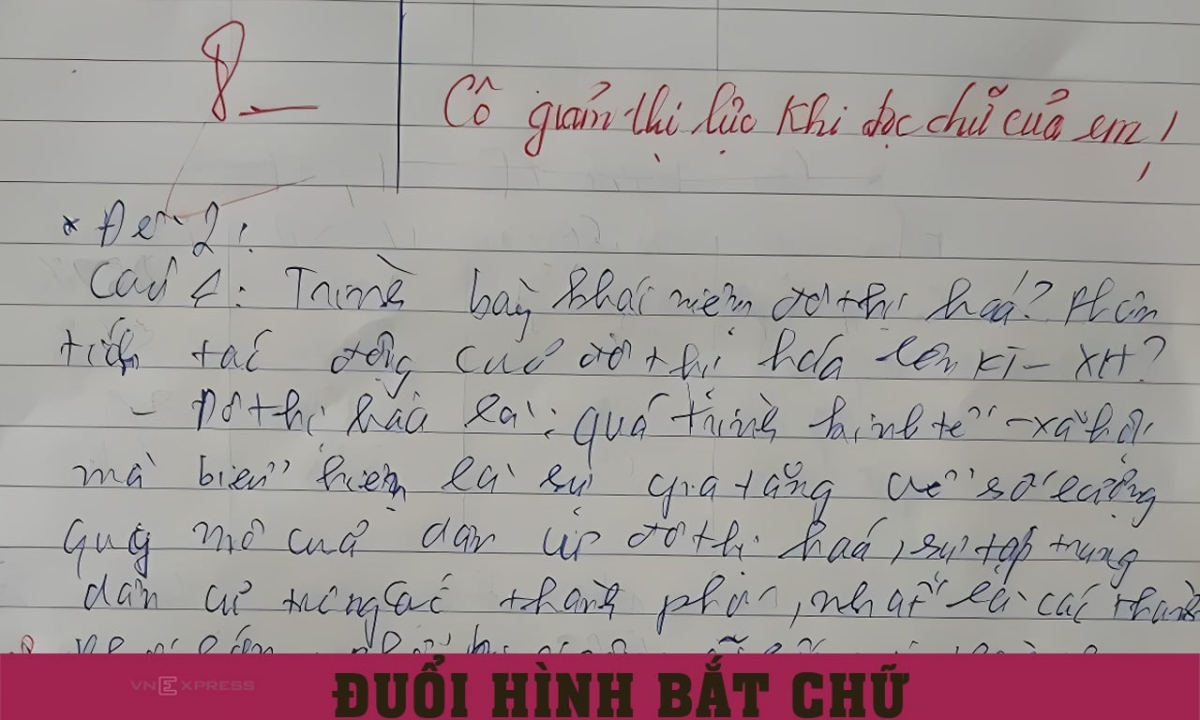 8
Cô giảm thị lực khi đọc chữ của em!
* Đề 2:
Câu 1: Trình bày khái niệm đô thị hoá? Phân
tích tác động của đô thị hóa lên KT - XH?
- Đô thị hóa là: quá trình kinh tế - xã hội
mà biểu hiện là sự gia tăng về số lượng
quy mô của dân cư đô thị hoá, sự tập trung
dân cư trong các thành phố, nhất là các thành
VNEXPRESS
ĐUỔI HÌNH BẮT CHỮ